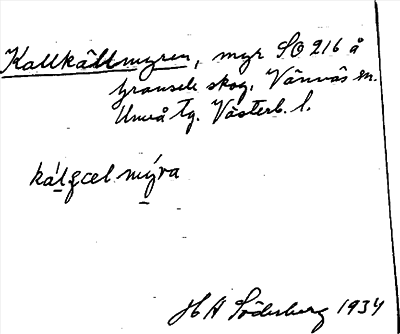 Kallkällmyren, myr SO 216 å
Gransele skog, Vännäs sn.
Umeå Tg. Västerb. l.
kálçœl mýra
H A Söderberg 1934